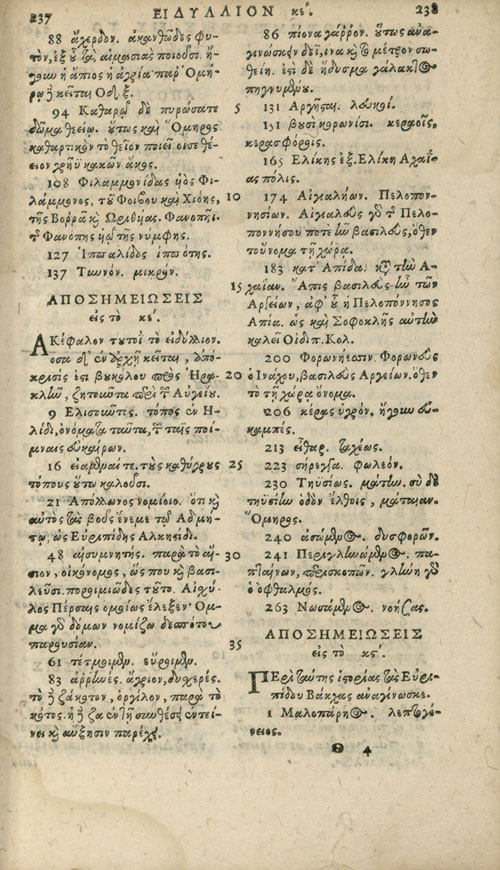 237 ΕΙΔΥΛΛΙΟΝ κε΄. 238
88 ἄχερδον. ἀκανθῶδες φυ-
τὸν, ἐξ οὗ τὰς αἱμασιὰς ποιοῦσι. ἤ-
γουν ἡ ἄπιος ἡ ἀγρία παρ' Ὁμή-
ρῳ κεῖται Οδ. ξ.
94 Καθαρῷ δὲ πυρώσατε
δῶμα θεείῳ. οὕτως καὶ Ὅμηρος
καθαρτικὸν τὸ θεῖον ποιεῖ οἶσε θέ-
ειον γρηῢ κακῶν ἄκος.
108 Φιλαμμονίδας υἱὸς Φι-
λάμμονος, τοῦ Φοίβου καὶ Χιόνης,
τῆς Βορρᾶ καὶ Ὠρειθύας. Φανοπηΐ.
τῆς Φανόπης τῆς νύμφης.
127 Ἱππαλίδος ἱππότης.
137 Τυννόν. μικρόν.
ΑΠΟΣΗΜΕΙΩΣΕΙΣ
εἰς τὸ κε΄.
ΑΚέφαλον τουτοῒ τὸ εἰδύλλιον.
ὅσα δ' ἐν ἀρχῇ κεῖται, ἀπό-
κρισίς ἐστι βουκόλου πρὸς Ἡρα-
κλῆν, ζητοῦντα περὶ τοῦ Αὐγείου.
9 Ελισοῦντες. τόπος ἐν Ἤ-
λιδι, ὀνόματα ταῦτα, ταῖς ποί-
μναις εὔκαιρων.
16 εἱαμεναί τε. τοὺς καθύγρους
τόπους οὕτω καλοῦσι.
21 Απόλλωνος νομίοιο. ὅτι καὶ
αὐτὸς τὰς βοῦς ἔνεμε τῷ Ἀδμή-
τῳ, ὡς Εὐριπίδης Αλκηστίδι.
48 αἰσυμνητής. παρὰ τὸ αἴ-
σιον, οἰκονόμος, ὥς που καὶ βασι-
λεῦσι. ποιμιῶδες τοῦτο. Αἰσχύ-
λος Πέρσαις ὁμοίως ἔλεξεν· Ὄμ-
μα γὰρ δόμων νομίζω δεσπότου
παρουσίαν.
61 τέτμοιμεν. εὕροιμεν.
83 ἀρριές. ἄγριον, δυχερές.
τὸ ζάκοτον, ὀργίλον, παρὰ τὸ
κότος. ἡ ζα ἐν τῇ συνθέσει ἐντεί-
νει καὶ αὔξησιν παρέχει.
86 πίονα γάρρον. οὕτως ἀνα-
γινώσκειν δεῖ, ἵνα καὶ τὸ μέτρον σω-
θείη. ἔστι δὲ ἥδυσμα γάλακτος
πηγνυμένου.
5 131 Αργῆσται. λευκοί.
151 βουσὶ κορωνίσι. κεραοῖς,
κερασφόροις.
165 Ελίκης ἐξ. Ελίκη Αχαΐ-
ας πόλις.
10 174 Αἰγιαλήων. Πελοπον-
νησίων. Αἰγιαλεὺς γὰρ τῆς Πελο-
ποννήσου ποτε ἦν βασιλεὺς, ὅθεν
τοὔνομα τῇ χώρᾳ.
183 κατ' Απίδα. κατὰ τὴν Α-
15 χαΐαν. Ἆπις βασιλεὺς ἦν τῶν
Αργείων, ἀφ' οὗ ἡ Πελοπόννησος
Απία. ὡς καὶ Σοφοκλῆς αὐτὴν
καλεῖ Οἰδίπ. Κολ.
200 Φορωνήεσσιν. Φορωνεὺς
20 ὁ Ινάχου, βασιλεὺς Αργείων. ὅθεν
τὸ τῇ χώρᾳ ὄνομα.
206 κέρας ὑγρόν. ἤγουν εὐ-
καμπές.
213 εἶθαρ. ταχέως.
25 223 σήραγγα. φωλεόν.
230 Τηϋσίως. μάτην. σὺ δὲ
τηϋσίην ὁδὸν ἔλθοις, ματαίαν.
Ὅμηρος.
240 ἀσώμενος. δυσφορῶν.
30 241 Περιγληνώμενος. πα-
πταίνων, περισκοπῶν. γλήνη γὰρ
ὁ ὀφθαλμός.
263 Νωσάμενος. νοήσας.
ΑΠΟΣΗΜΕΙΩΣΕΙΣ
35 εἰς τὸ κς΄.
ΠΕρὶ ταύτης ἱστορίας τὰς Εὐρι-
πίδου Βάκχας ἀναγίνωσκε.
1 Μαλοπάρῃος. λεπτογέ-
νειος.
Θ 4